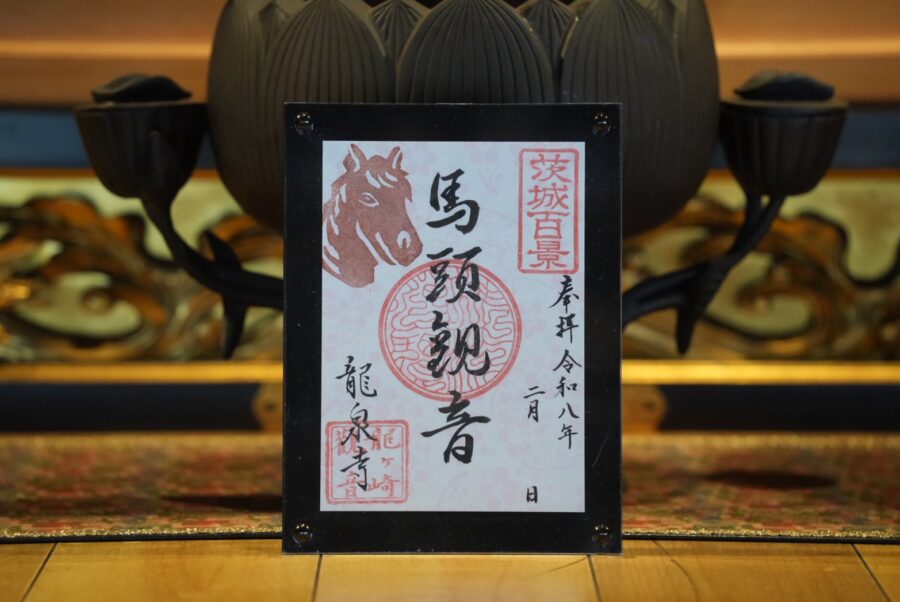 茨城百景
奉拝令和八年
二月　日
馬頭観音
龍泉寺
龍ヶ崎
観音